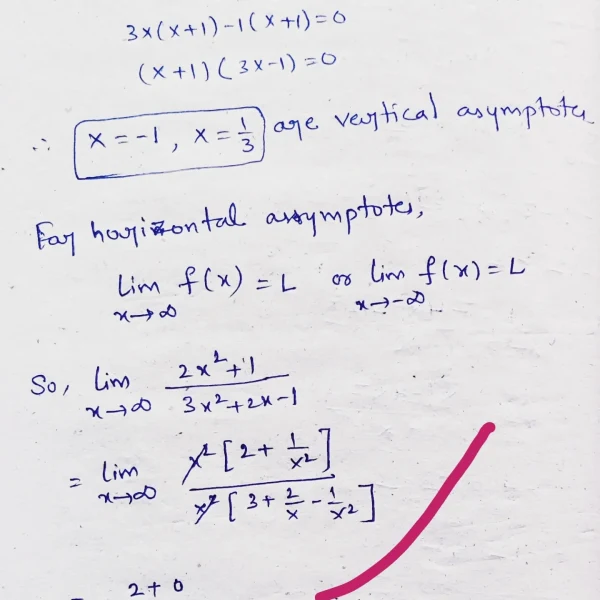 3x(x+1)-1(x+1)=0
(x+1)(3x-1)=0
∴ x=-1, x=1/3 are vertical asymptotes
For horizontal assymptotes,
lim x→∞ f(x) = L or lim x→-∞ f(x) = L
So, lim x→∞ (2x²+1)/(3x²+2x-1)
= lim x→∞ x²[2+1/x²]/x²[3+2/x-1/x²]
= 2+0